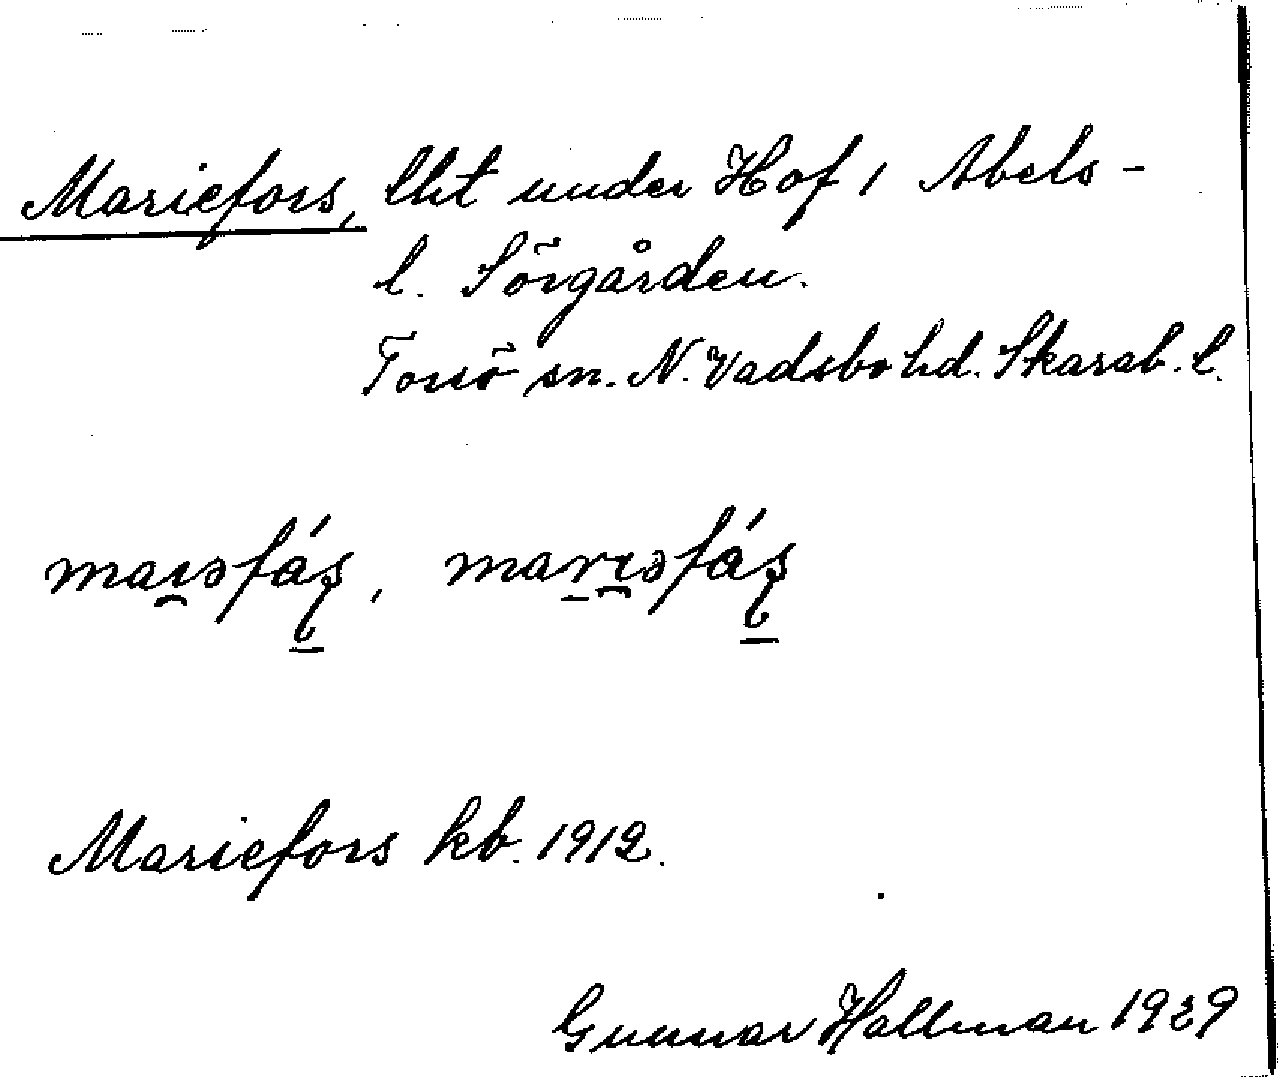 Mariefors, lht under Hof 1 Abels-
l. Sörgården.
Torsö sn. N. Vadsbo hd. Skarab. l.
maɪəfás̨, marɪəfás̨
Mariefors kb. 1912.
Gunnar Hallman 1929